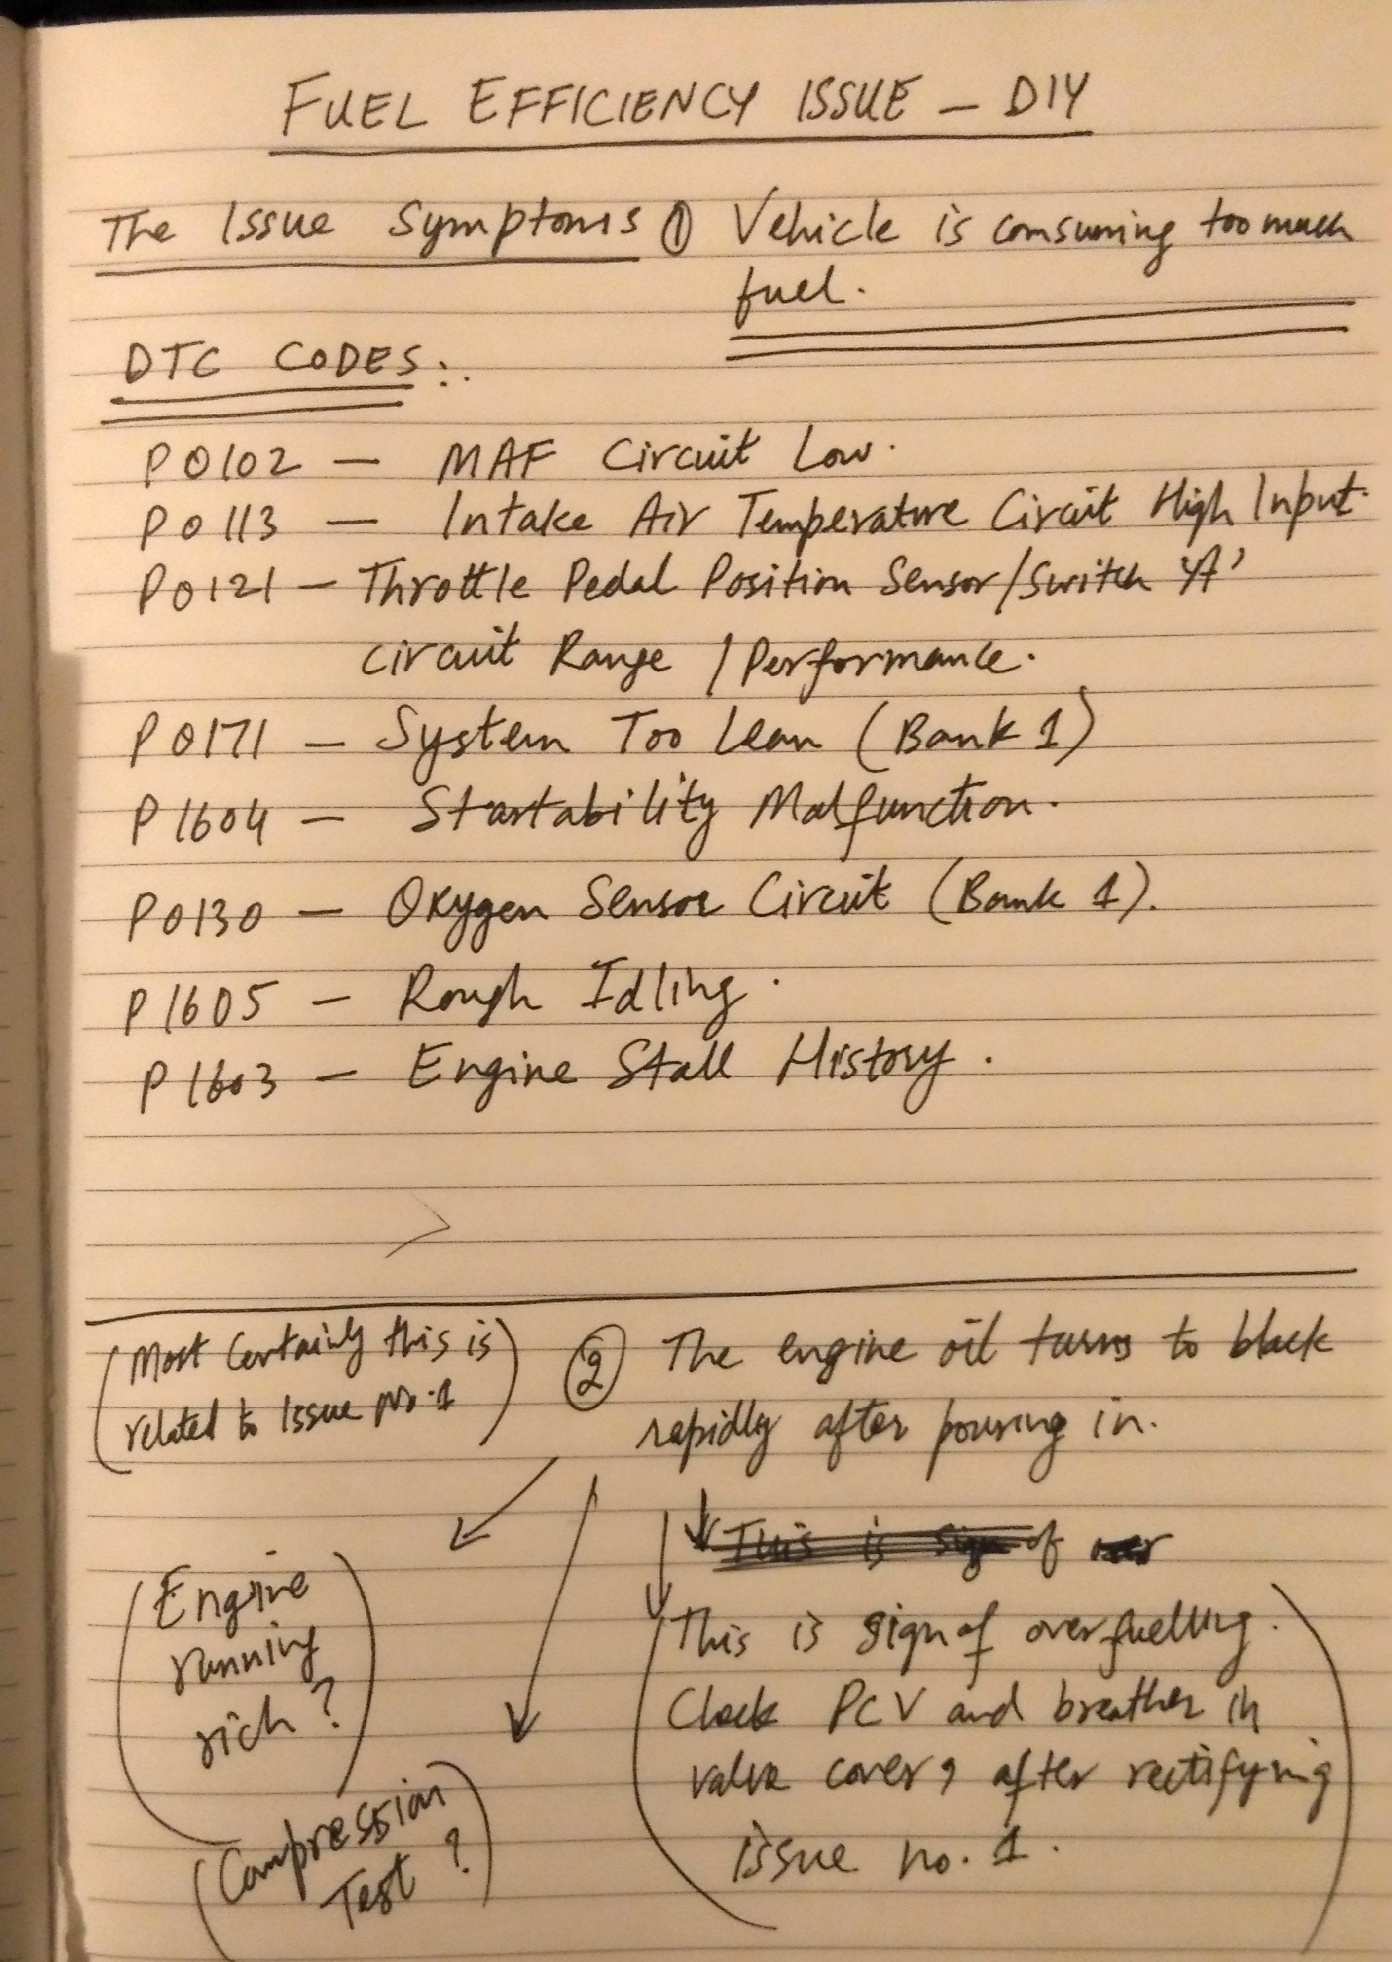 FUEL EFFICIENCY ISSUE – DIY
The Issue Symptoms ① Vehicle is consuming too much
fuel.
DTC CODES:.
P0102 – MAF Circuit Low.
P0113 – Intake Air Temperature Circuit High Input.
P0121 – Throttle Pedal Position Sensor/Switch 'A'
circuit Range / Performance.
P0171 – System Too Lean (Bank 1)
P1604 – Startability Malfunction.
P0130 – Oxygen Sensor Circuit (Bank 1).
P1605 – Rough Idling.
P1603 – Engine Stall History.
(Most Certainly this is
related to Issue No. 1)
② The engine oil turns to black
rapidly after pouring in.
This is sign of over
(This is sign of overfuelling.
Check PCV and breather in
valve cover, after rectifying
issue no. 1.)
(Engine
running
rich?)
(Compression
Test?)